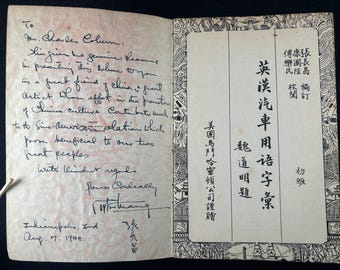 To
Mr. Charles Coburn,
This gives me genuine pleasure
in presenting this volume to you
as a great friend of China, a great
artist whose effort in the promotion
of Chinese culture contributes much
to the Sino-American relation which
prove beneficial to our two
great peoples
With kindest regards
Yours Cordially
張長昌
Indianapolis, Ind
Aug. 7, 1944
張長昌 編訂
康國陸
傅樂民 校閱
初版
英漢汽車用語字彙
魏道明題
美國馬門哈靈頓公司謹贈